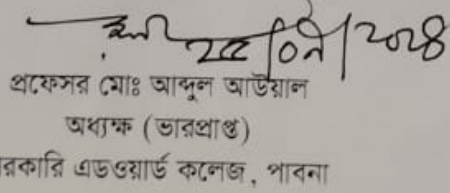 ২৫/০৯/২০২৪
প্রফেসর মোঃ আব্দুল আউয়াল
অধ্যক্ষ (ভারপ্রাপ্ত)
রকারি এডওয়ার্ড কলেজ, পাবনা